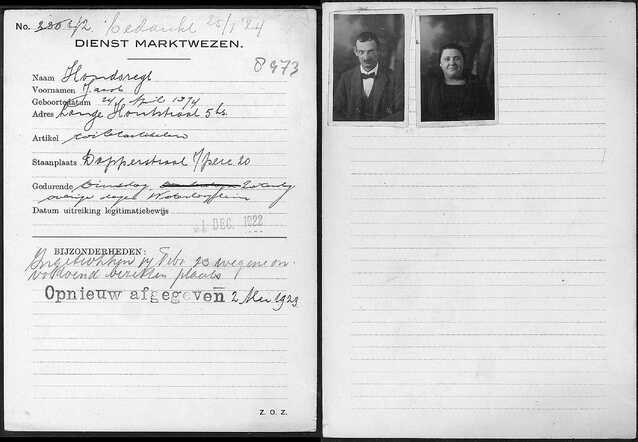 No. 2/2. Bedankt 25/1 '24
DIENST MARKTWEZEN.
8973
Naam Hondsregt
Voornamen Jacob
Geboortedatum 24 April 1874
Adres Lange Houtstraat 5 hs.
Artikel
Staanplaats Dapperstraat 20
Gedurende Dinsdag, Zaterdag
overige dagen Waterlooplein
Datum uitreiking legitimatiebewijs
21 DEC. 1922
BIJZONDERHEDEN:
Ingetrokken Febr 23 wegens on-
voldoend bezetten plaats
Opnieuw afgegeven 2 Mei 1923
Z. O. Z.